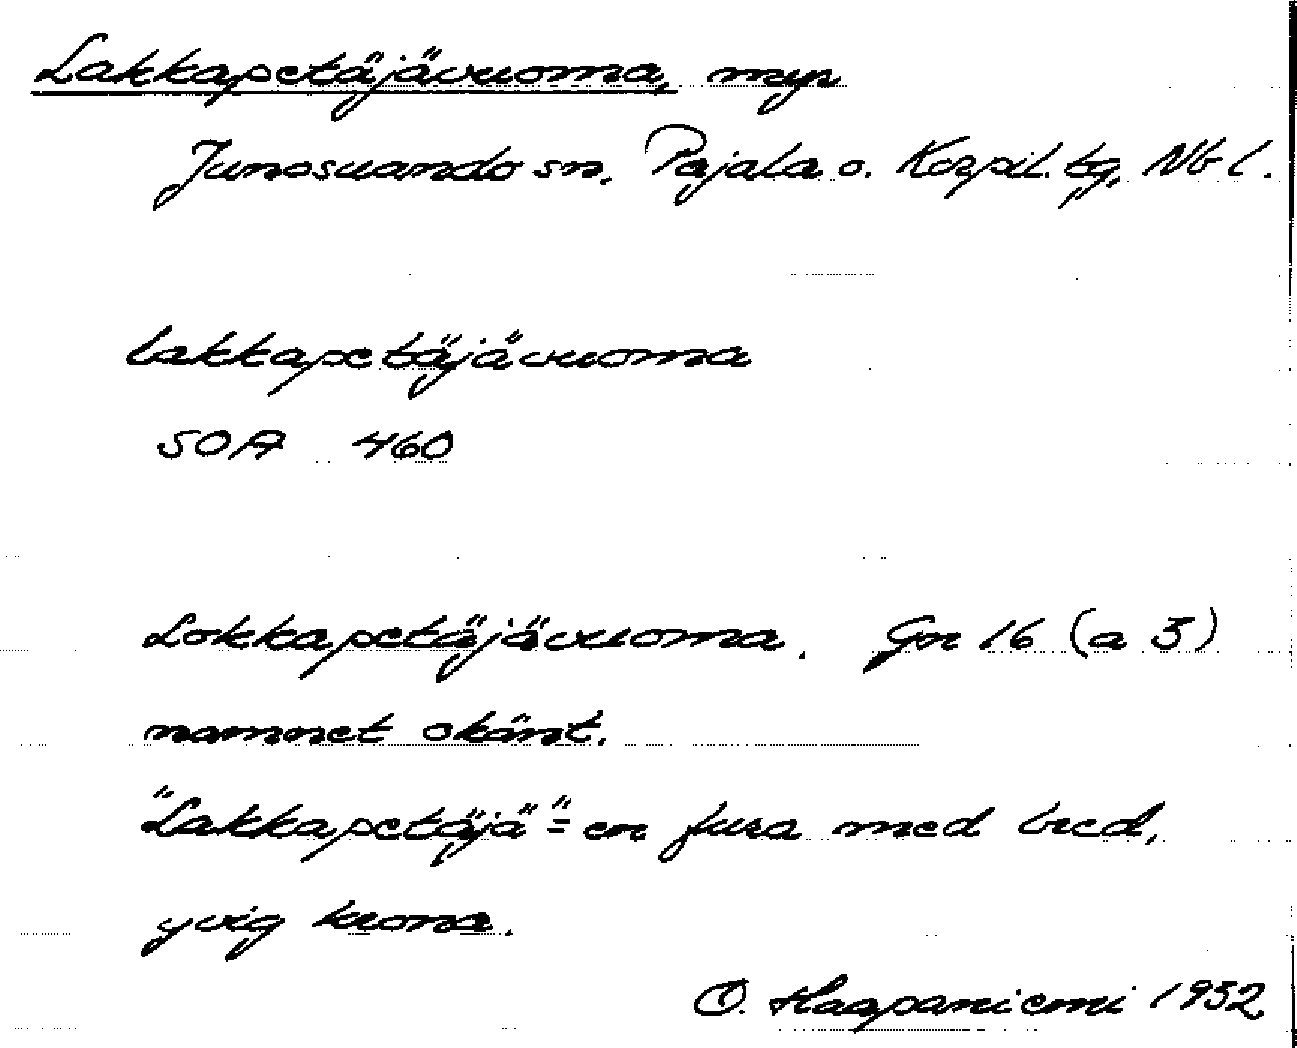 Lakkapetäjävuoma, myr
Junosuando sn. Pajala o. Korpil. tg, Nb l.
lakkapetäjävuoma
SOA 460
Lokkapetäjävuoma. Gr 16 (a 3)
namnet okänt.
"Lakkapetäjä" = en fura med bred,
yvig krona.
O. Haapaniemi 1932